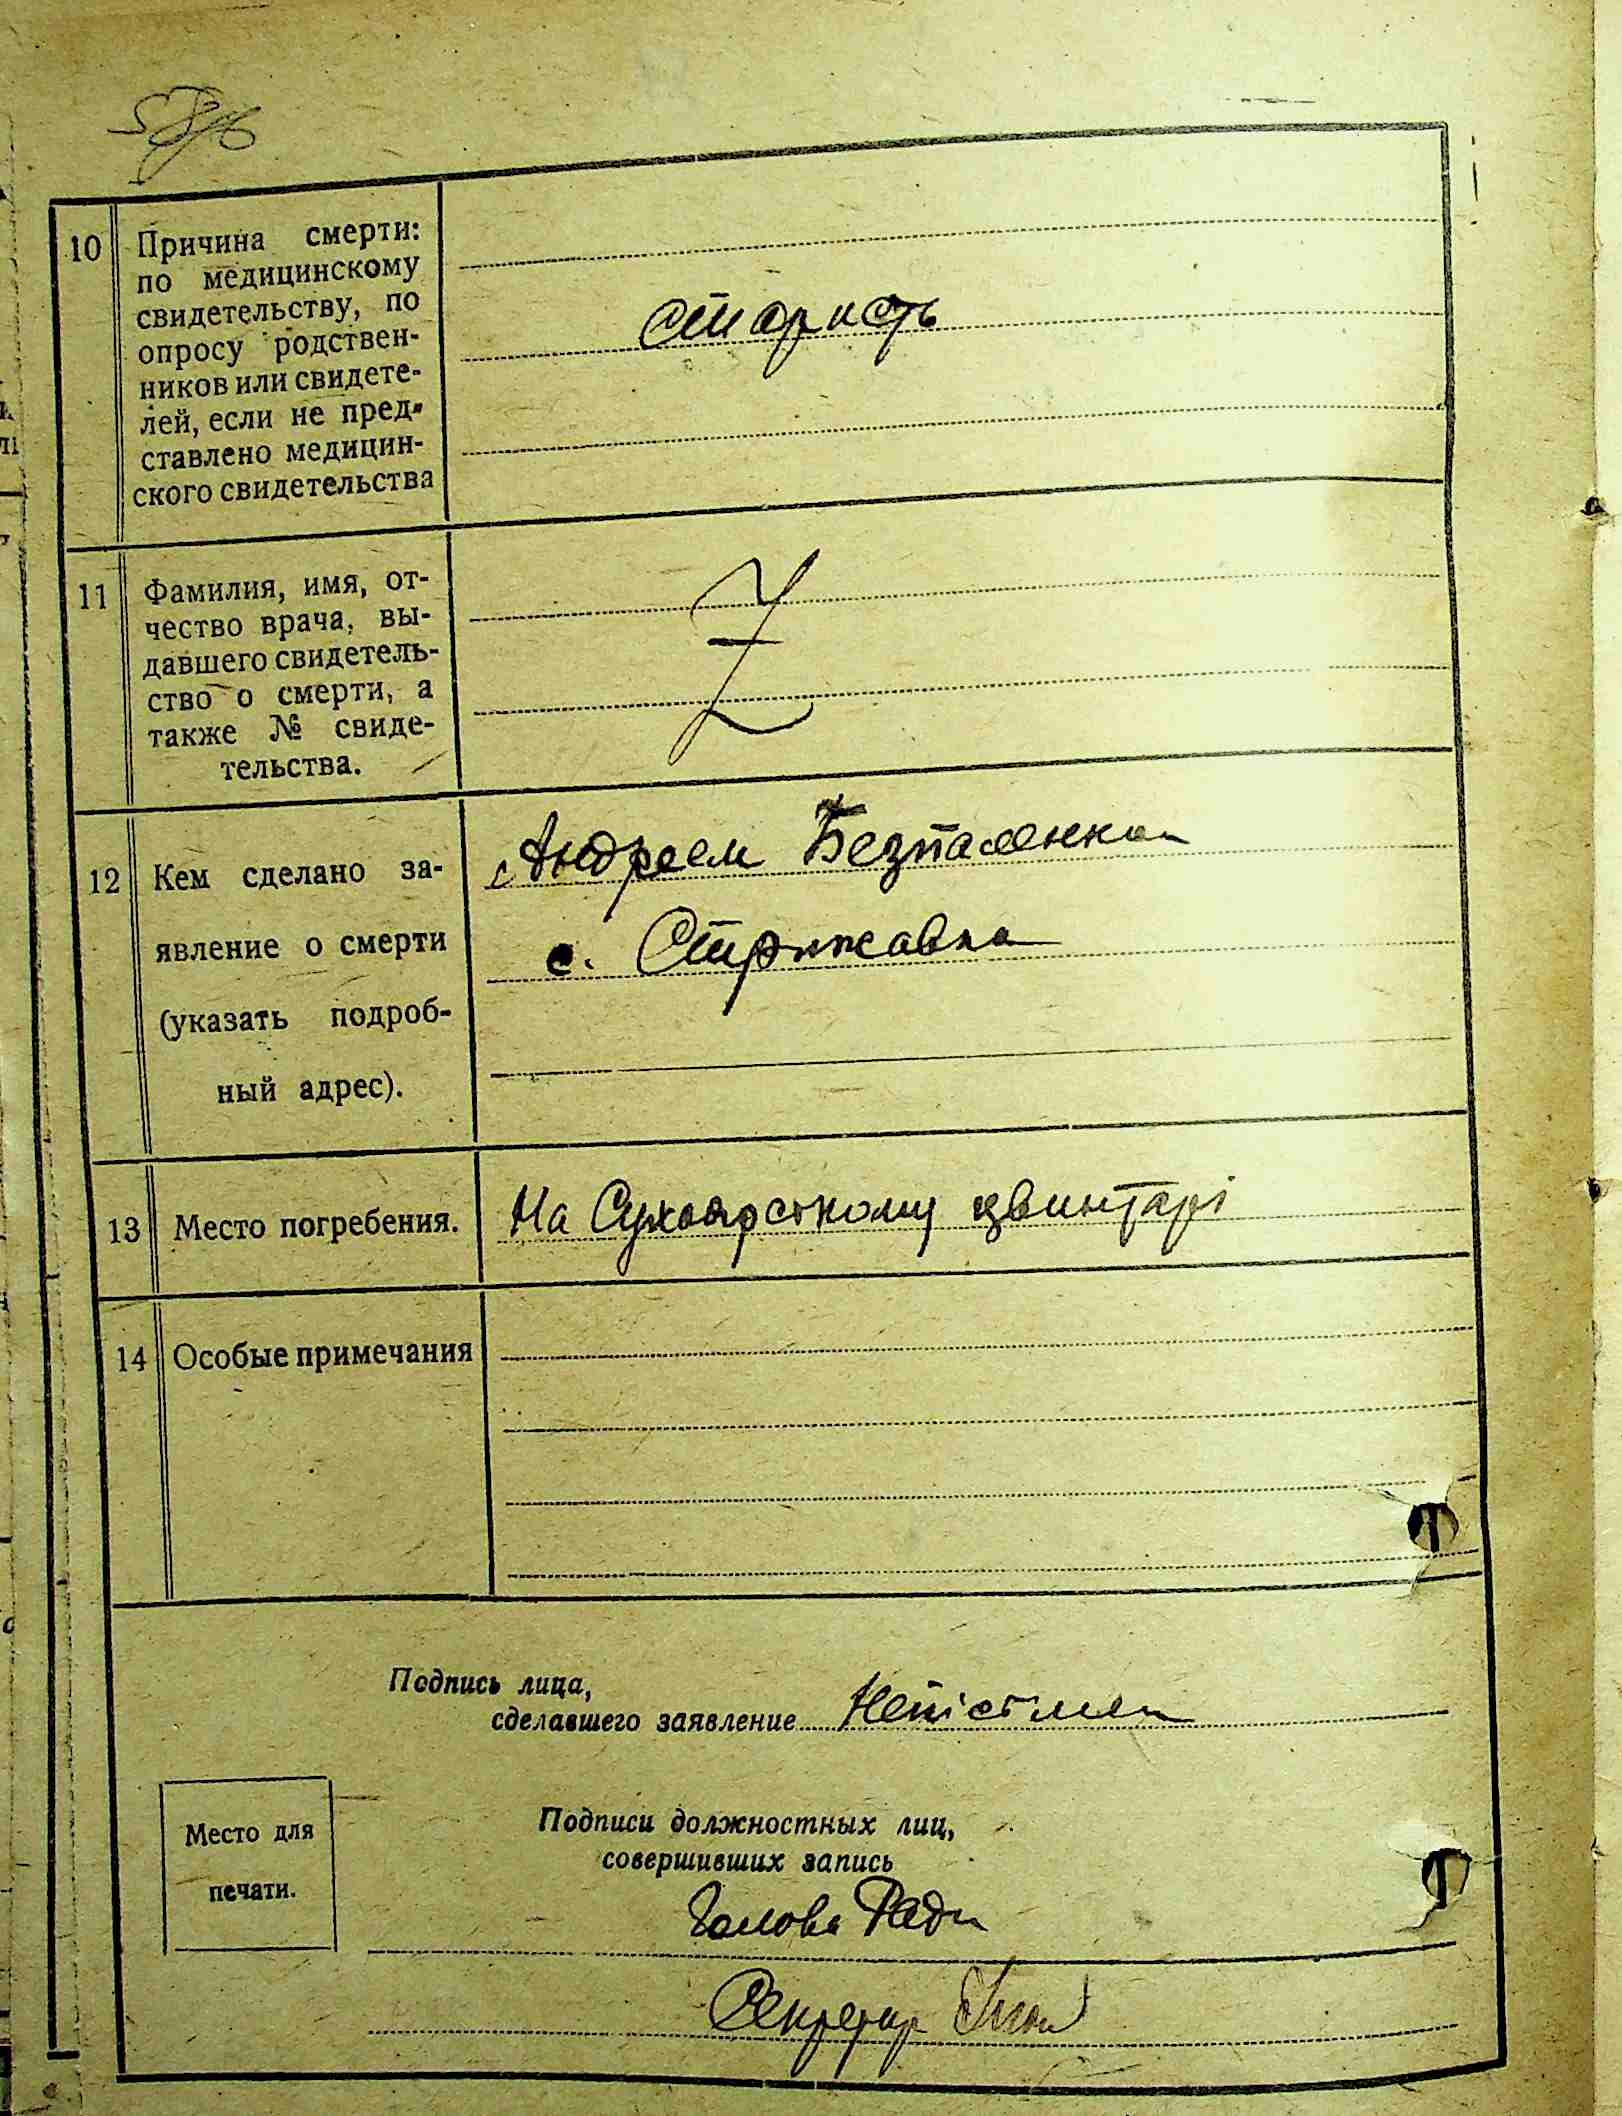 10 Причина смерти:
по медицинскому
свидетельству, по
опросу родствен-
ников или свидете-
лей, если не пред-
ставлено медицин-
ского свидетельства
старисть
11 Фамилия, имя, от-
чество врача, вы-
давшего свидетель-
ство о смерти, а
также № свиде-
тельства.
Z
12 Кем сделано за-
явление о смерти
(указать подроб-
ный адрес).
Андреем Безпаленком
с. Стрижавка
13 Место погребения.
На Сухоярському цвинтарі
14 Особые примечания
Подпись лица,
сделавшего заявление
Место для
печати.
Подписи должностных лиц,
совершивших запись
Голова Ради
Секретар